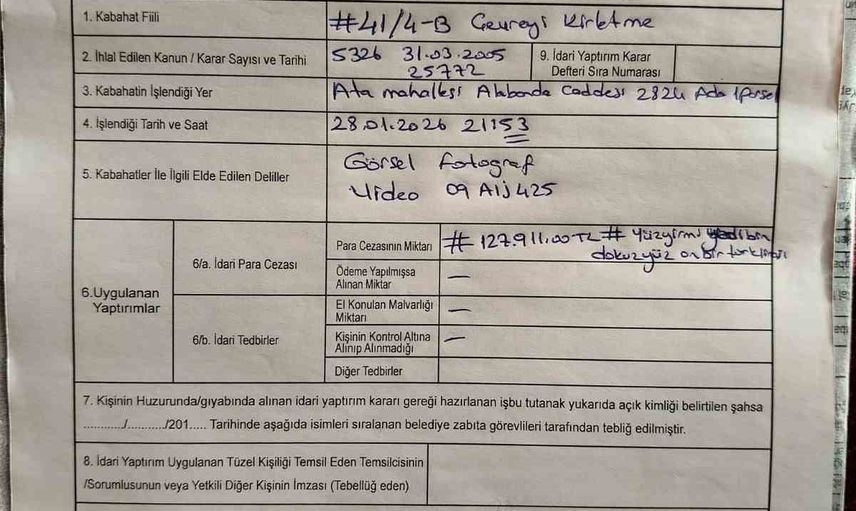 1. Kabahat Fiili
#41/4-B Çevreyi Kirletme
2. İhlal Edilen Kanun / Karar Sayısı ve Tarihi
5326 31.03.2005
25772
9. İdari Yaptırım Karar
Defteri Sıra Numarası
3. Kabahatin İşlendiği Yer
Ata mahallesi Alabanda Caddesi 2824 Ada 1parsel
4. İşlendiği Tarih ve Saat
28.01.2026 21:53
5. Kabahatler İle İlgili Elde Edilen Deliller
Görsel fotograf
Video 09 AIJ 425
6.Uygulanan
Yaptırımlar
6/a. İdari Para Cezası
Para Cezasının Miktarı
# 127.911.00 TL # Yüzyirmi yedibin
dokuzyüz onbir türklirası
Ödeme Yapılmışsa
Alınan Miktar
—
6/b. İdari Tedbirler
El Konulan Malvarlığı
Miktarı
—
Kişinin Kontrol Altına
Alınıp Alınmadığı
—
Diğer Tedbirler
7. Kişinin Huzurunda/gıyabında alınan idari yaptırım kararı gereği hazırlanan işbu tutanak yukarıda açık kimliği belirtilen şahsa
............/............/201..... Tarihinde aşağıda isimleri sıralanan belediye zabıta görevlileri tarafından tebliğ edilmiştir.
8. İdari Yaptırım Uygulanan Tüzel Kişiliği Temsil Eden Temsilcisinin
/Sorumlusunun veya Yetkili Diğer Kişinin İmzası (Tebellüğ eden)